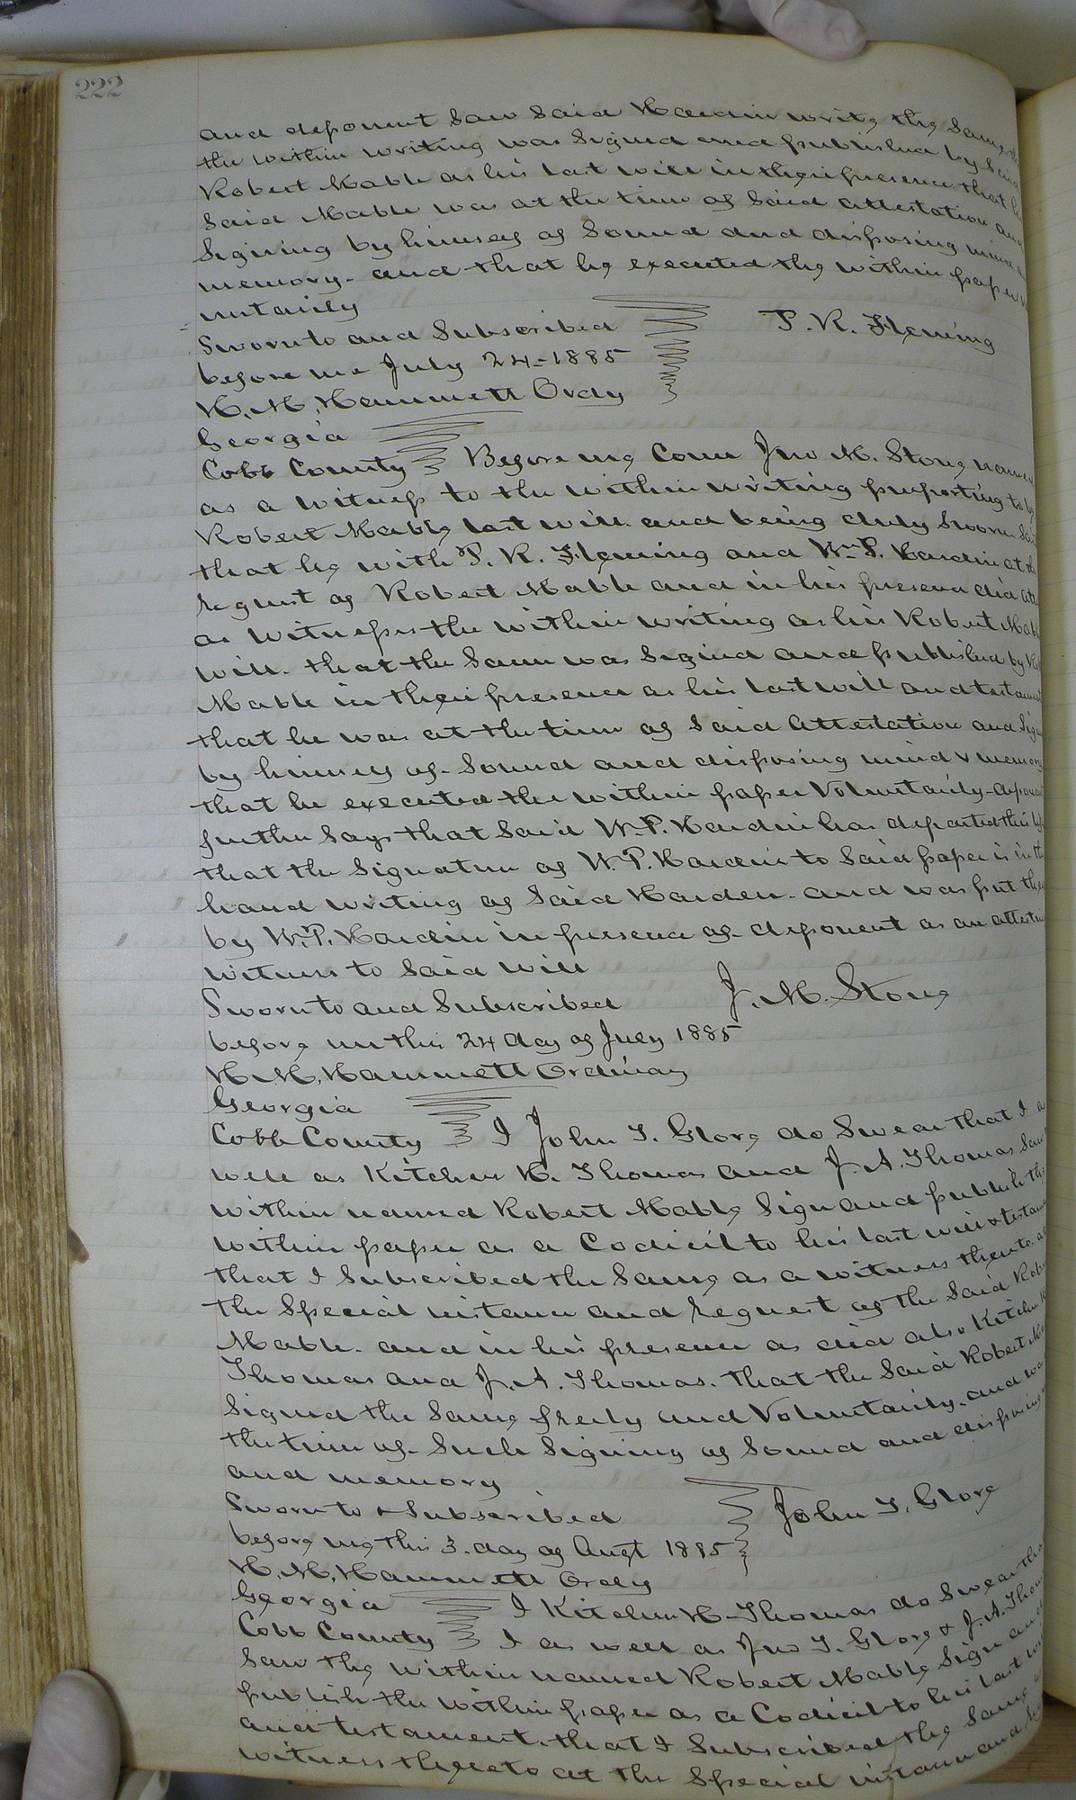 222
and deponent saw said Hardin write the same
the within writing was signed and published by said
Robert Mable as his last will in their presence that he
said Mable was at the time of said attestation and
signing by himself of sound and disposing mind
memory. and that he executed the within paper
untarily
Sworn to and Subscribed
P. R. Fleming
before me July 24-1885
H. M. Hammett Ordy
Georgia
Cobb County Before me Come Jno M. Stone named
as a witness to the within writing purporting to be
Robert Mable last will and being duly sworn
that he with P. R. Fleming and Wm P. Hardin at
request of Robert Mable and in his presence did
as witnesses the within writing as his Robert
will. that the same was signed and published by
Mable in their presence as his last will and testament
that he was at the time of said attestation and
by himself of sound and disposing mind & memory
that he executed the within paper Voluntarily-deponent
further says that said W. P. Hardin has departed this
that the signature of W. P. Hardin to said paper is in the
hand writing of said Harden. and was put
by W. P. Hardin in presence of deponent as an
witness to said will
Sworn to and Subscribed
J. M. Stone
before me this 24 day of July 1885
H. M. Hammett Ordinary
Georgia
Cobb County I John T. Glore do Swear that I
well as Kitchen H. Thomas and J. A. Thomas
within named Robert Mable Sign and publish the
within paper as a Codicil to his last will &
that I Subscribed the same as a witness thereto
the special instance and request of the said
Mable. and in his presence as did also Kitchen
Thomas and J. A. Thomas. that the said Robert
signed the same freely and Voluntarily. and
the time of such signing of sound and disposing
and memory
Sworn to & Subscribed
John T. Glore
before me this 3. day of Augt 1885
H. M. Hammett Ordy
Georgia I Kitchen H. Thomas do Swear
Cobb County I as well as Jno T. Glore & J. A.
Saw the within named Robert Mable Sign
publish the within paper as a Codicil to his last
and testament. that I Subscribed the same
witness thereto at the special instance and